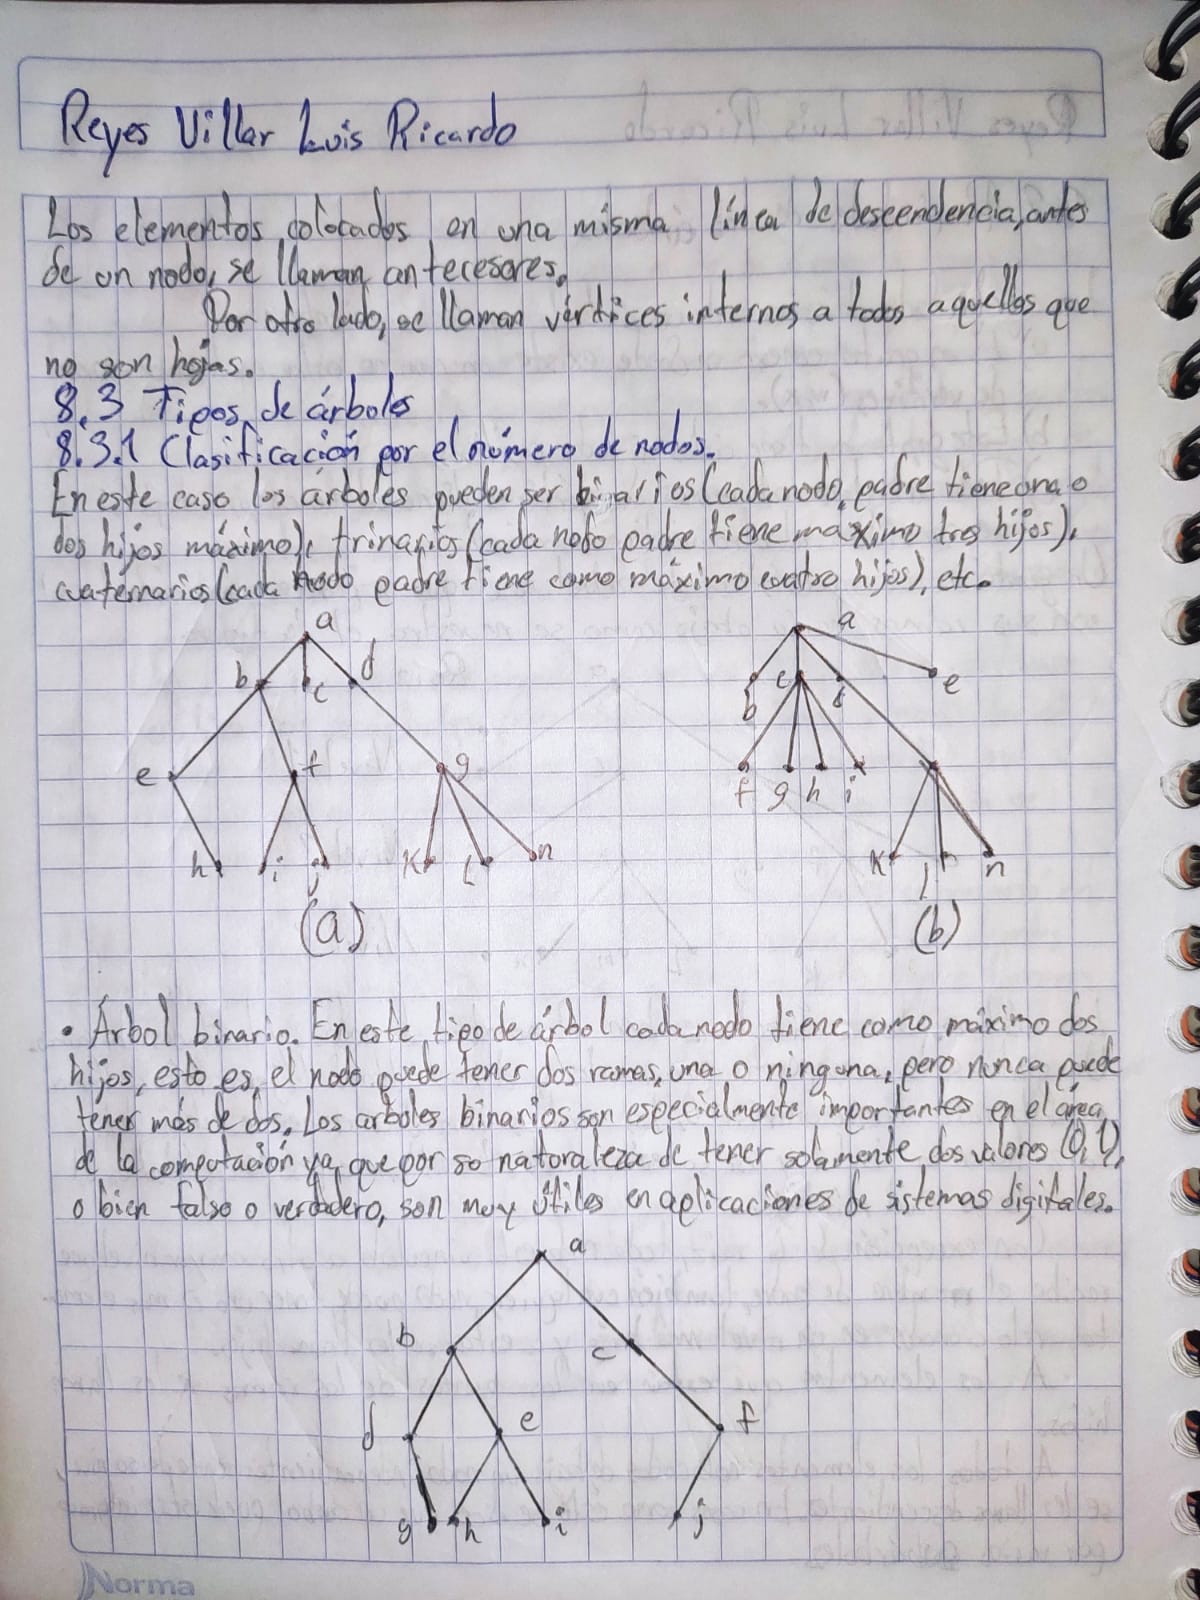 Reyes Villar Luis Ricardo
Los elementos colocados en una misma línea de descendencia, antes
de un nodo, se llaman antecesores.
Por otro lado, se llaman vértices internos a todos aquellos que
no son hojas.
8.3 Tipos de árboles
8.3.1 Clasificación por el número de nodos.
En este caso los árboles pueden ser binarios (cada nodo padre tiene una o
dos hijos máximo), trinarios (cada nodo padre tiene máximo tres hijos),
cuaternarios (cada nodo padre tiene como máximo cuatro hijos), etc.
a a
b c d b c d e
e f g f g h i
h i j k l n k l n
(a) (b)
• Árbol binario. En este tipo de árbol cada nodo tiene como máximo dos
hijos, esto es, el nodo puede tener dos ramas, una o ninguna, pero nunca puede
tener más de dos. Los árboles binarios son especialmente importantes en el área
de la computación ya que por su naturaleza de tener solamente dos valores (0,1),
o bien falso o verdadero, son muy útiles en aplicaciones de sistemas digitales.
a
b c
d e f
g h i j
Norma